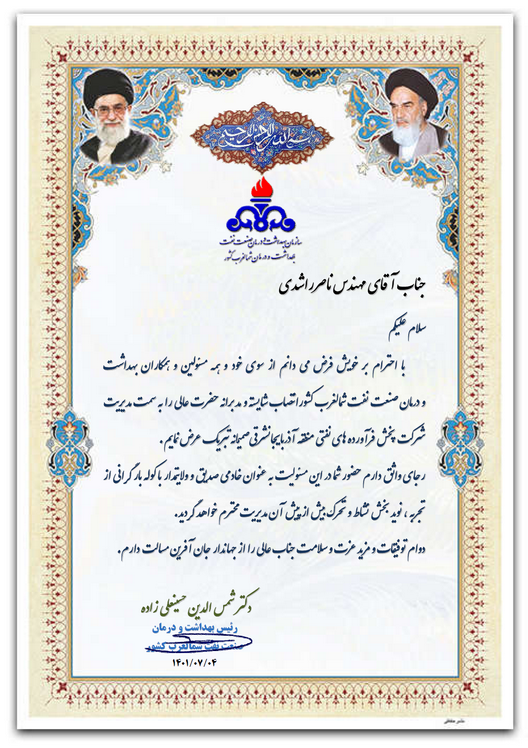 بسم الله الرحمن الرحیم
سازمان بهداشت و درمان صنعت نفت
بهداشت و درمان شمالغرب کشور
جناب آقای مهندس ناصر راشدی
سلام علیکم
با احترام بر خویش فرض می دانم از سوی خود و همه مسئولین و همکاران بهداشت
و درمان صنعت نفت شمالغرب کشور انتصاب شایسته و مدبرانه حضرت عالی را به سمت مدیریت
شرکت پخش فرآورده های نفتی منطقه آذربایجانشرقی صمیمانه تبریک عرض نمایم.
رجای واثق دارم حضور شما در این مسئولیت به عنوان خادمی صدیق و ولایتمدار با کوله بار گرانی از
تجربه ، نوید بخش نشاط و تحرک بیش از پیش آن مدیریت محترم خواهد گردید.
دوام توفیقات و مزید عزت و سلامت جناب عالی را از جهاندار جان آفرین مسالت دارم.
دکتر شمس الدین حسینعلی زاده
رئیس بهداشت و درمان
صنعت نفت شمالغرب کشور
۱۴۰۱/۰۷/۰۴